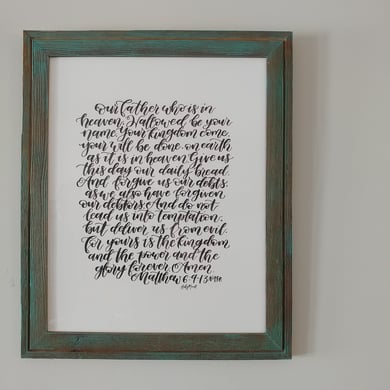 Our father who is in
heaven, Hallowed be your
name. Your kingdom come,
your will be done, on earth
as it is in heaven Give us
this day our daily bread.
And forgive us our debts,
as we also have forgiven
our debtors And do not
lead us into temptation,
but deliver us from evil.
For yours is the kingdom
and the power and the
glory forever Amen.
Matthew 6:9-13